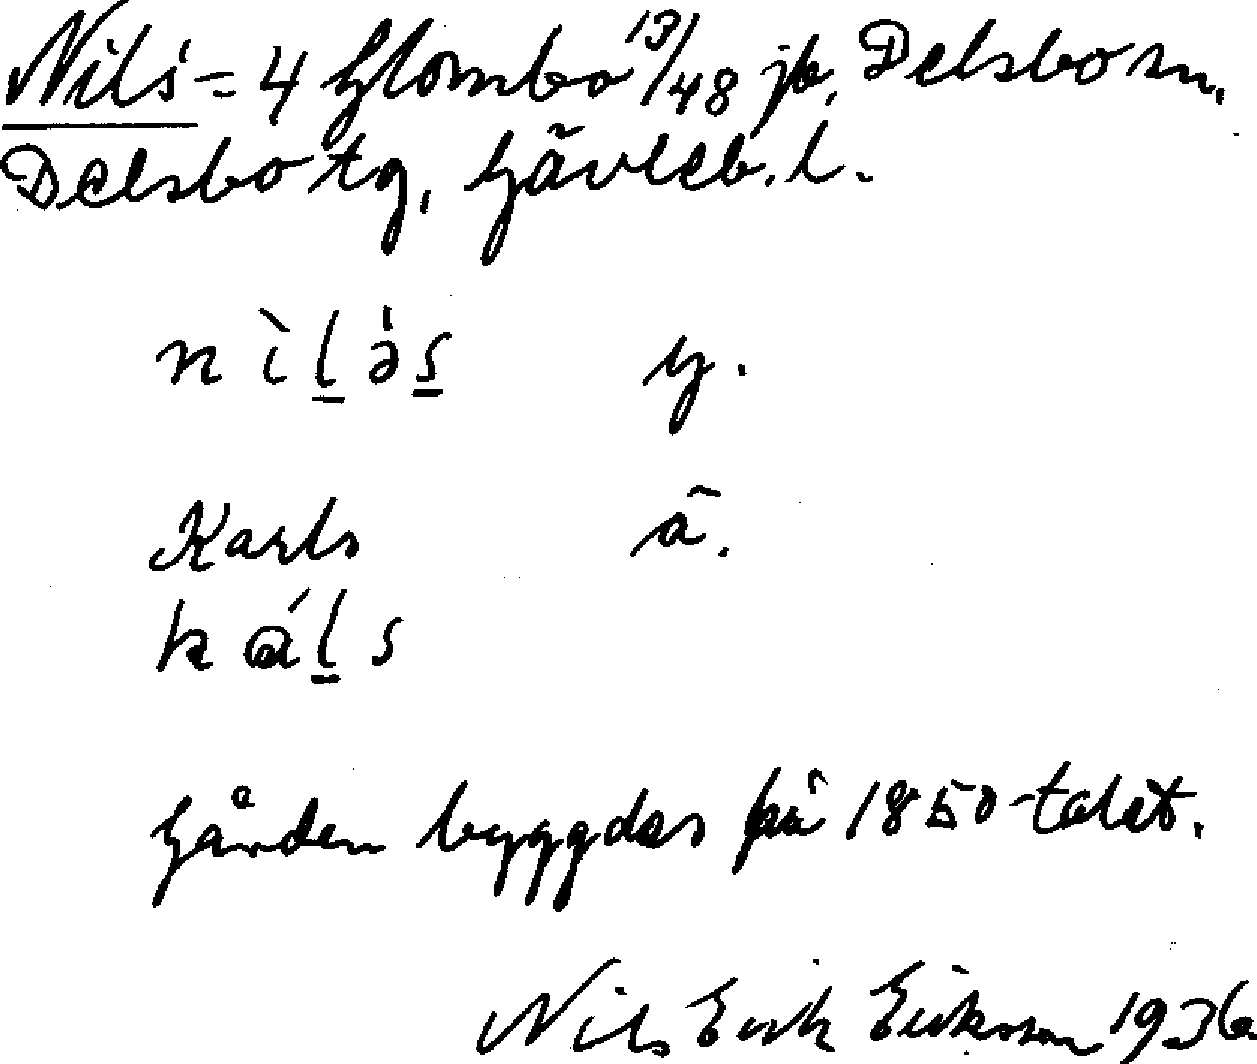 Nils' = 4 Glombo 13/48 jb, Delsbo sn,
Delsbo tg, Gävleb. l.
nìlə's y.
Karls ä.
kɑ́ls
Gården byggdes på 1850-talet.
Nils Erik Eriksson 1936